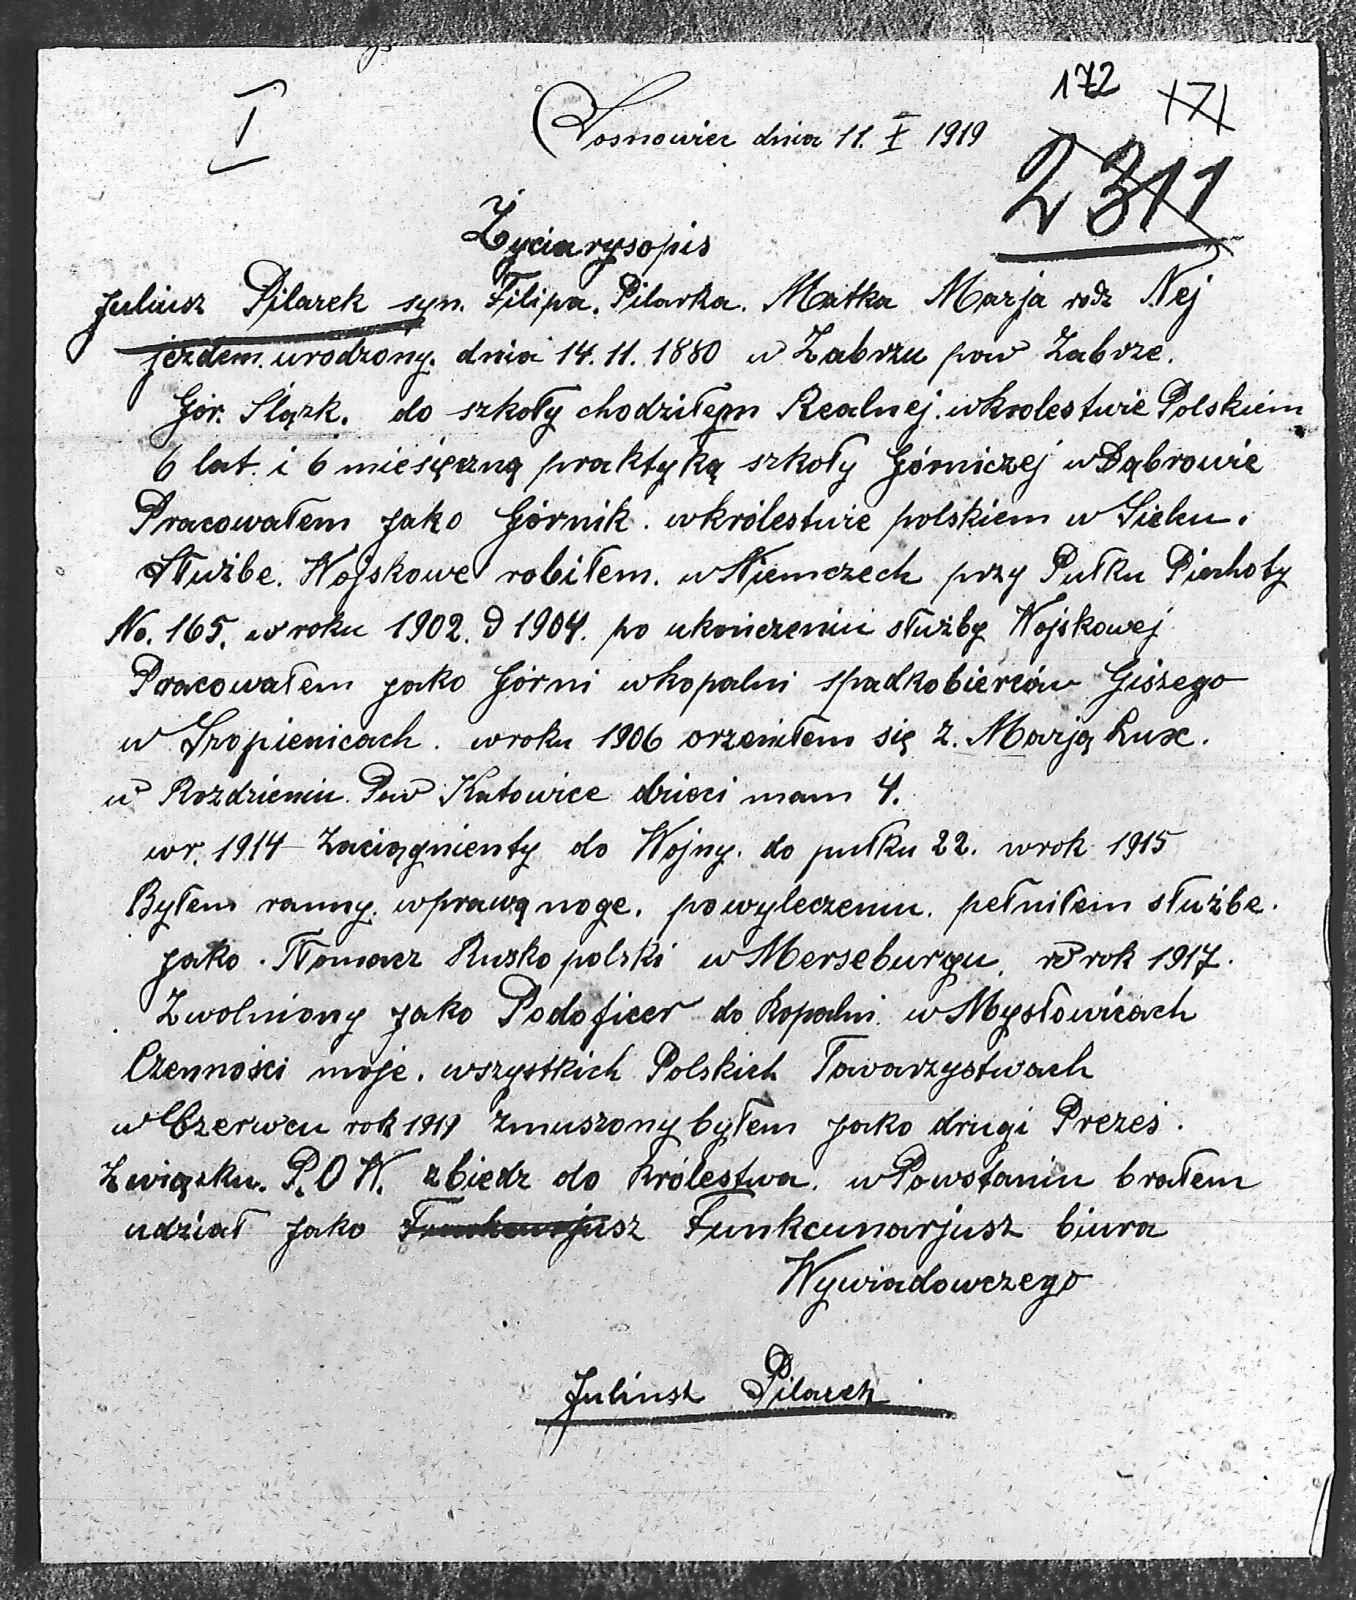 172 171
I
Sosnowiec dnia 11. X 1919
2311
Życiarysopis
Juliusz Pilarek syn. Filipa. Pilarka. Matka Marja rodz Nej
jezdem. urodzony. dnia 14. 11. 1880 w Zabrzu pow Zabrze.
Gór. Slązk. do szkoły chodziłem Realnej. w krolestwie Polskiem
6 lat. i 6 miesięczną praktyką szkoły Górniczej w Dąbrowie
Pracowałem jako Górnik. w królestwie polskiem w Sielcu.
Służbe. Wojskowe robiłem. w Niemczech przy Pułku Piechoty
No. 165. w roku 1902. d 1904. po ukończeniu służby Wojskowej
Pracowałem jako Górni w kopalni spadkobierców Giszego
w Szopienicach. w roku 1906 orzeniłem się z. Marją Lux.
w Rozdzieniu. Pow Katowice dzieci mam 4.
w r. 1914 Zaciągnienty do Wojny. do pułku 22. w rok 1915
Byłem ranny. w prawą noge. po wyleczeniu. pełniłem służbe.
jako. Tłomacz Rusko polski w Merseburgu. w rok 1917.
Zwolniony jako Podoficer do kopalni. w Mysłowicach
Czenności moje. wszystkich Polskich Towarzystwach
w Czerwcu rok 1919 zmuszony byłem jako drugi Prezes.
Związku. P.O W. zbiedz do królestwa. w Powstaniu brałem
udział jako Funkcunarjusz biura
Wywiadowczego
Juliusz Pilarek